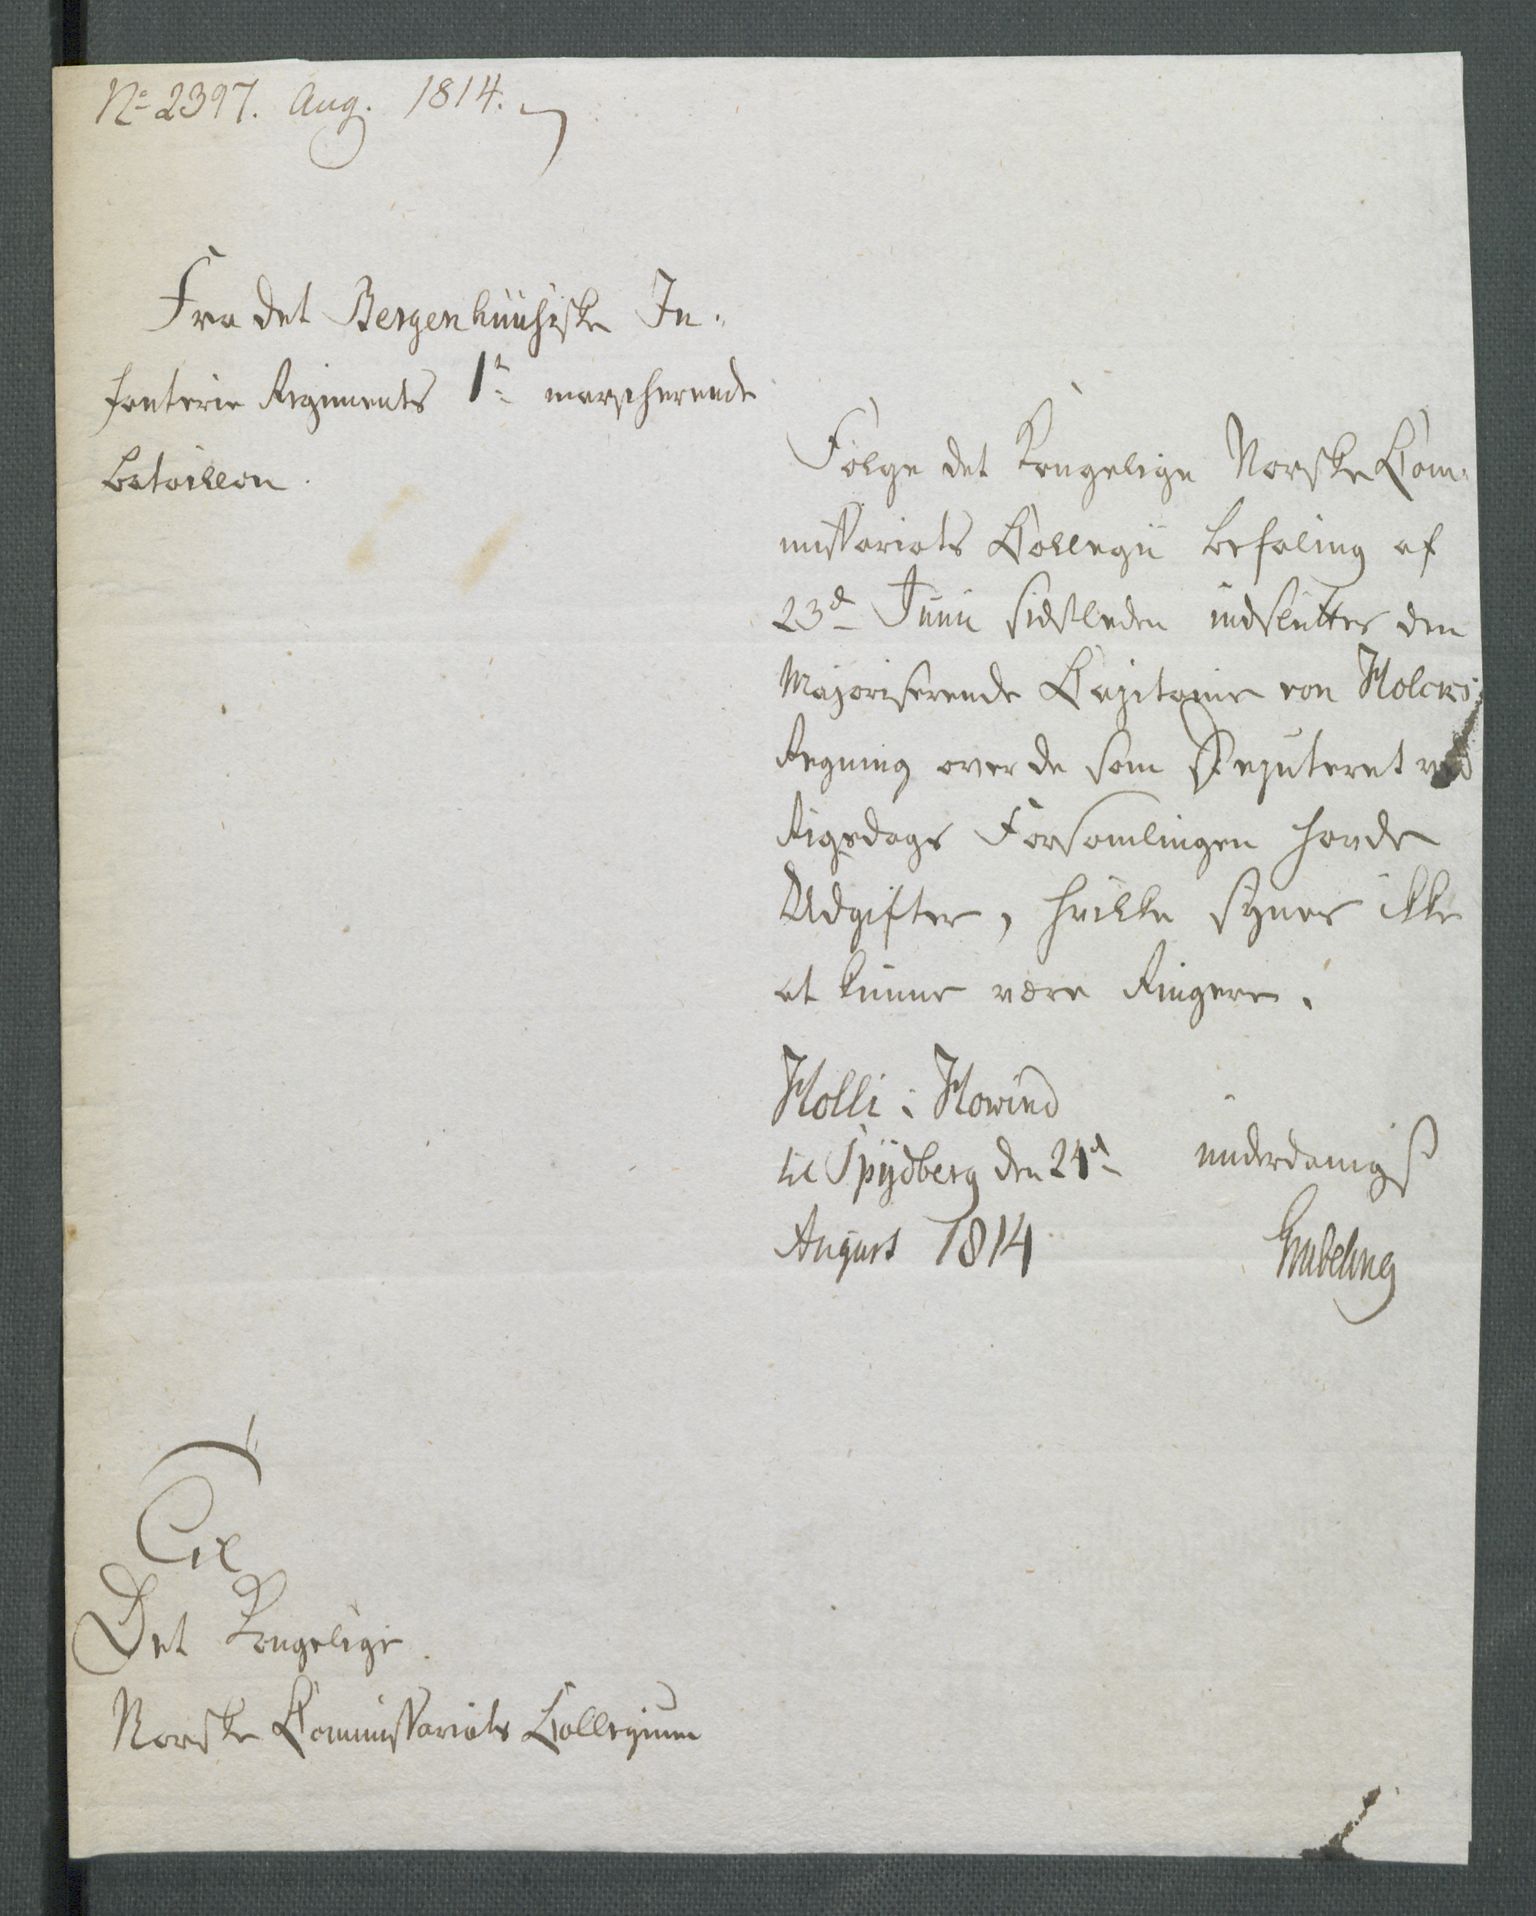 No 2397. Aug. 1814.
Fra det Bergenhuusiske In-
fanterie Regiments 1te marscherende
Bataillon.
Følge det Kongelige Norske Com-
missariats Collegii Befaling af
23d Junii sidstleden indsluttes den
Majoriserende Capitaine von Holcks
Regning over de som Deputeret ved
Rigsdags Forsamlingen havde
Udgifter, hvilke synes ikke
at kunne være Ringere.
Holli i Howind
til Spydberg den 24d
August 1814
underdanigst
Til
Det Kongelige
Norske Commissariats Collegium